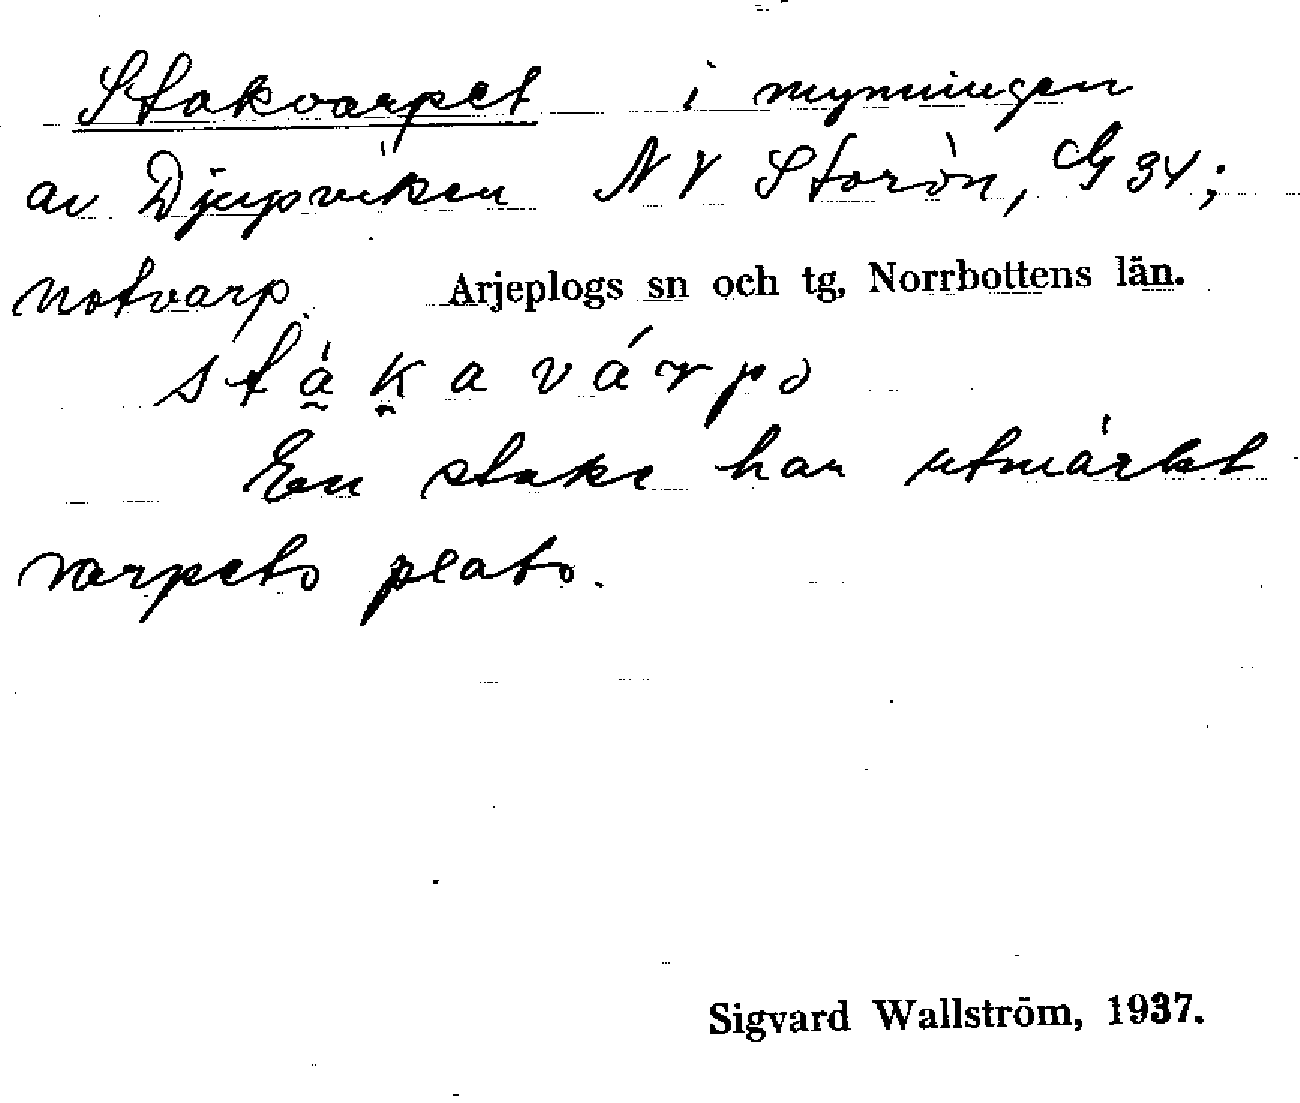 Stakvarpet i mynningen
av Djupviken NV Storön, G 34;
notvarp. Arjeplogs sn och tg, Norrbottens län.
stà̰k̭avárpɔ
En stake har utmärkt
varpets plats.
Sigvard Wallström, 1937.